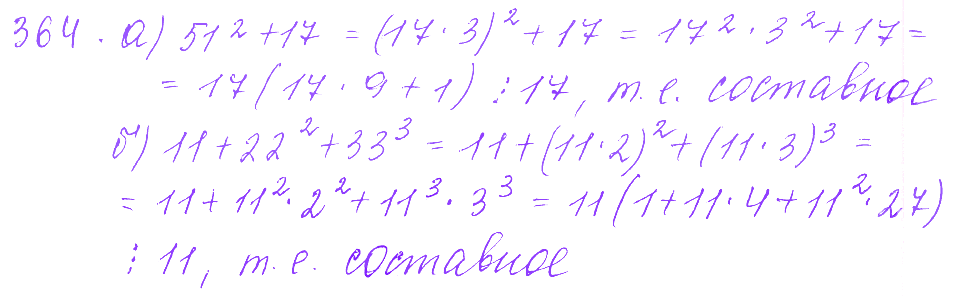 364. а) 51² + 17 = (17 · 3)² + 17 = 17² · 3² + 17 =
= 17 (17 · 9 + 1) ⋮ 17, т. е. составное
б) 11 + 22² + 33³ = 11 + (11 · 2)² + (11 · 3)³ =
= 11 + 11² · 2² + 11³ · 3³ = 11 (1 + 11 · 4 + 11² · 27)
⋮ 11, т. е. составное